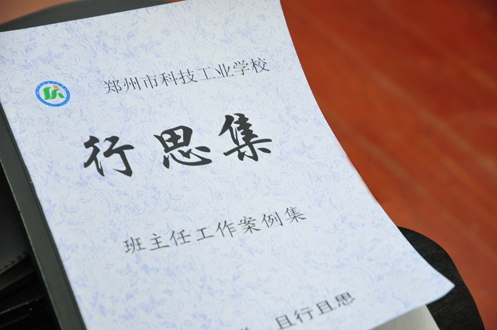 郑州市科技工业学校
行思集
班主任工作案例集
且行且思